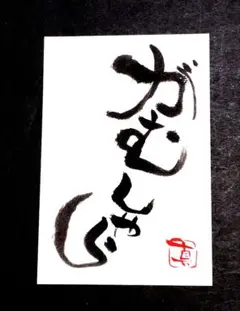 がむしゃら